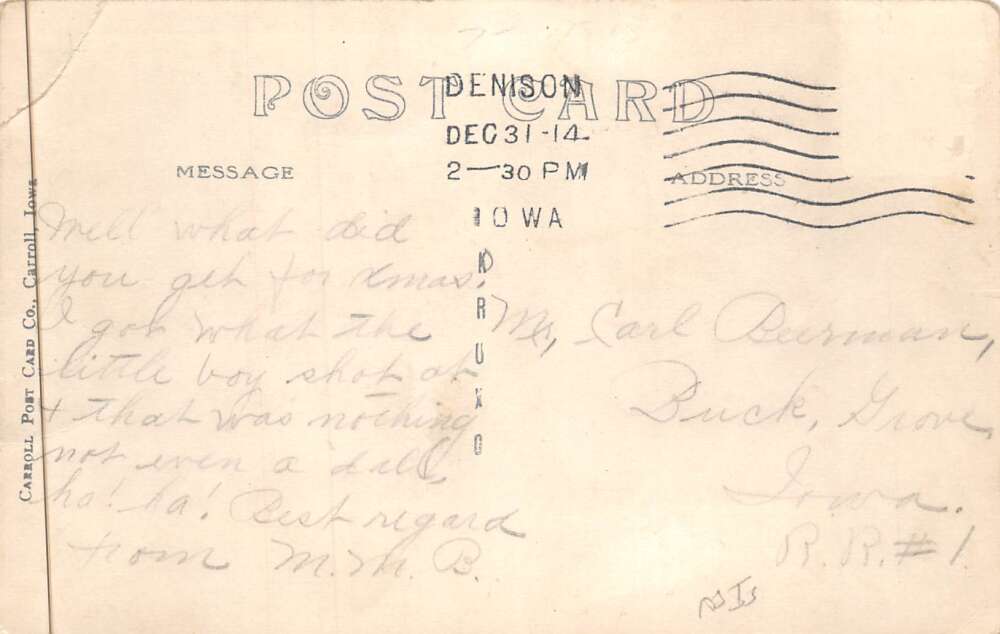 POST CARD
DENISON
DEC 31-14
2-30 PM
IOWA
MESSAGE
ADDRESS
CARROLL POST CARD CO., CARROLL, IOWA
Well what did
you get for Xmas.
I got what the
little boy shot at
+ that was nothing
not even a doll,
ha! ha! Best regard
from M.M. B.
Mr, Carl Beerman,
Buck, Grove,
Iowa.
R.R. #1.
KRUXO